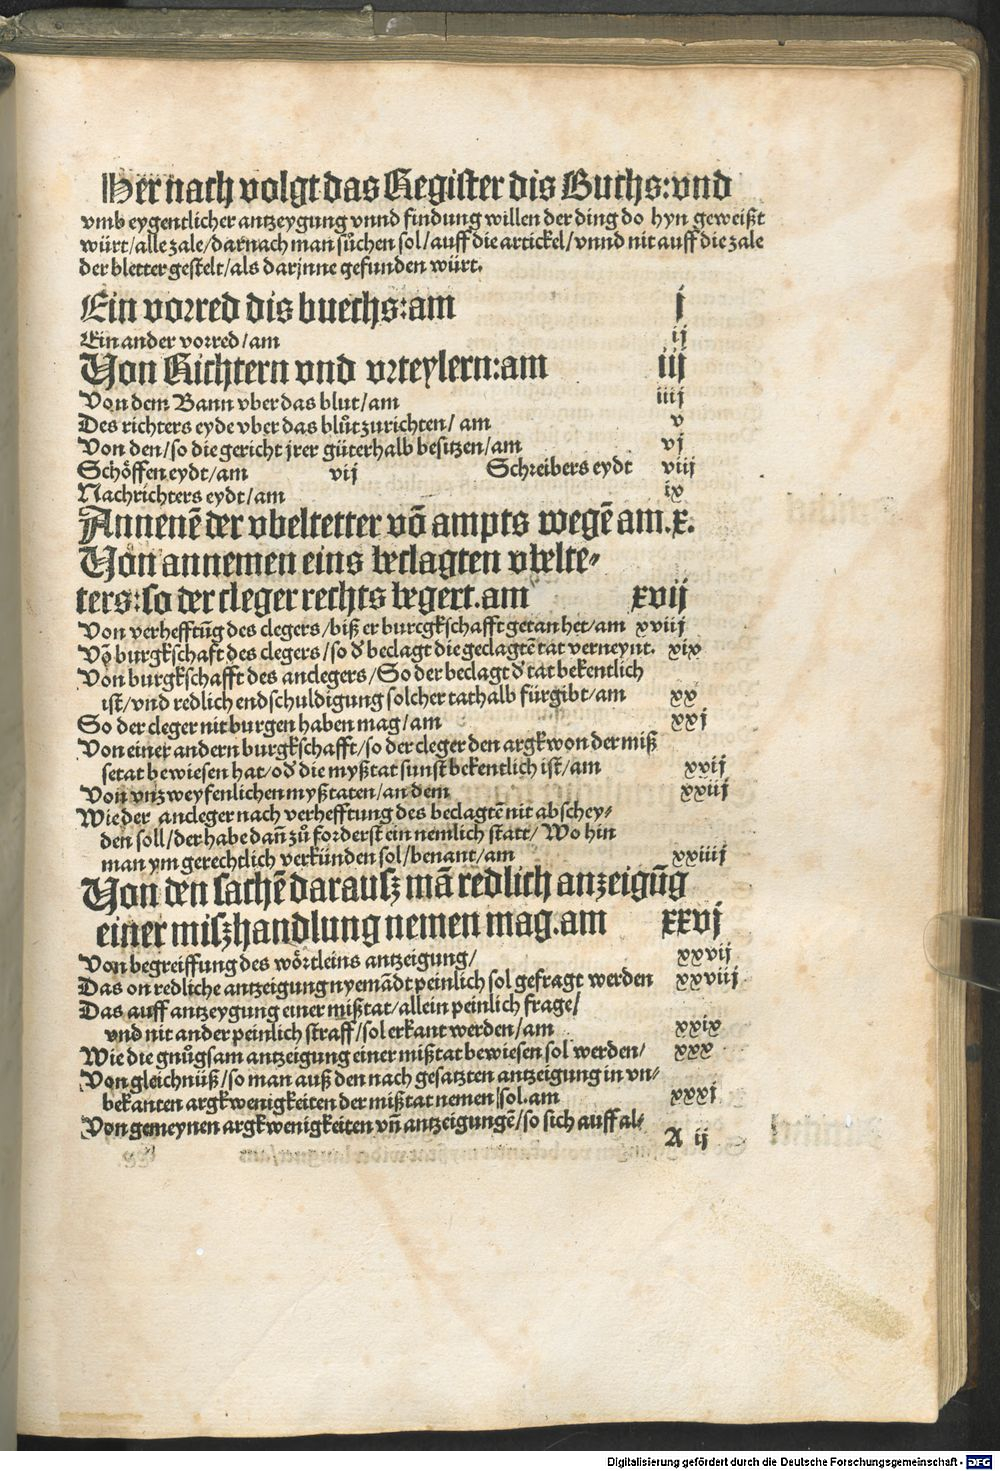 Her nach volgt das Register dis Buchs:vnd
vmb eygentlicher antzeygung vnnd findung willen der ding do hyn geweißt
würt/alle zale/darnach man sůchen sol/auff die artickel/vnnd nit auff die zale
der bletter gestelt/als darjnne gefunden würt.
Ein vorred dis buechs:am j
Ein ander vorred/am ij
Von Richtern vnd vrteylern:am iij
Von dem Bann vber das blut/am iiij
Des richters eyde vber das blůt zurichten/ am v
Von den/so die gericht jrer güterhalb besitzen/am vj
Schöffen eydt/am vij Schreibers eydt viij
Nachrichters eydt/am ix
Annenē der vbeltetter vō ampts wegē am.x.
Von annemen eins beclagten vbelte-
ters:so der cleger rechts begert.am xvij
Von verhefftūg des clegers/biß er burcgkschafft getan het/am xviij
Vō burgkschaft des clegers/so d̓ beclagt die geclagtē tat verneynt. xix
Von burgkschafft des anclegers/So der beclagt d̓ tat bekentlich
ist/vnd redlich endschuldigung solcher tathalb fürgibt/am xx
So der cleger nit burgen haben mag/am xxj
Von einer andern burgkschafft/so der cleger den argkwon der miß
setat bewiesen hat/od̓ die myßtat sunst bekentlich ist/am xxij
Von vnzweyfenlichen myßtaten/an dem xxiij
Wie der ancleger nach verhefftung des beclagtē nit abschey-
den soll/der habe dan̄ zů forderst ein nemlich statt/ Wo hin
man ym gerechtlich verkünden sol/benant/am xxiiij
Von den sachē darausz mā redlich anzeigūg
einer miszhandlung nemen mag.am xxvj
Von begreiffung des wörtleins antzeigung/ xxvij
Das on redliche antzeigung nyemādt peinlich sol gefragt werden xxviij
Das auff antzeygung einer mißtat/allein peinlich frage/
vnd nit ander peinlich straff/sol erkant werden/am xxix
Wie die gnůgsam antzeigung einer mißtat bewiesen sol werden/ xxx
Von gleichnüß/so man auß den nach gesatzten antzeigung in vn-
bekanten argkwenigkeiten der mißtat nemen sol.am xxxj
Von gemeynen argkwenigkeiten vn̄ antzeigungē/so sich auff al-
A ij
Digitalisierung gefördert durch die Deutsche Forschungsgemeinschaft - DFG